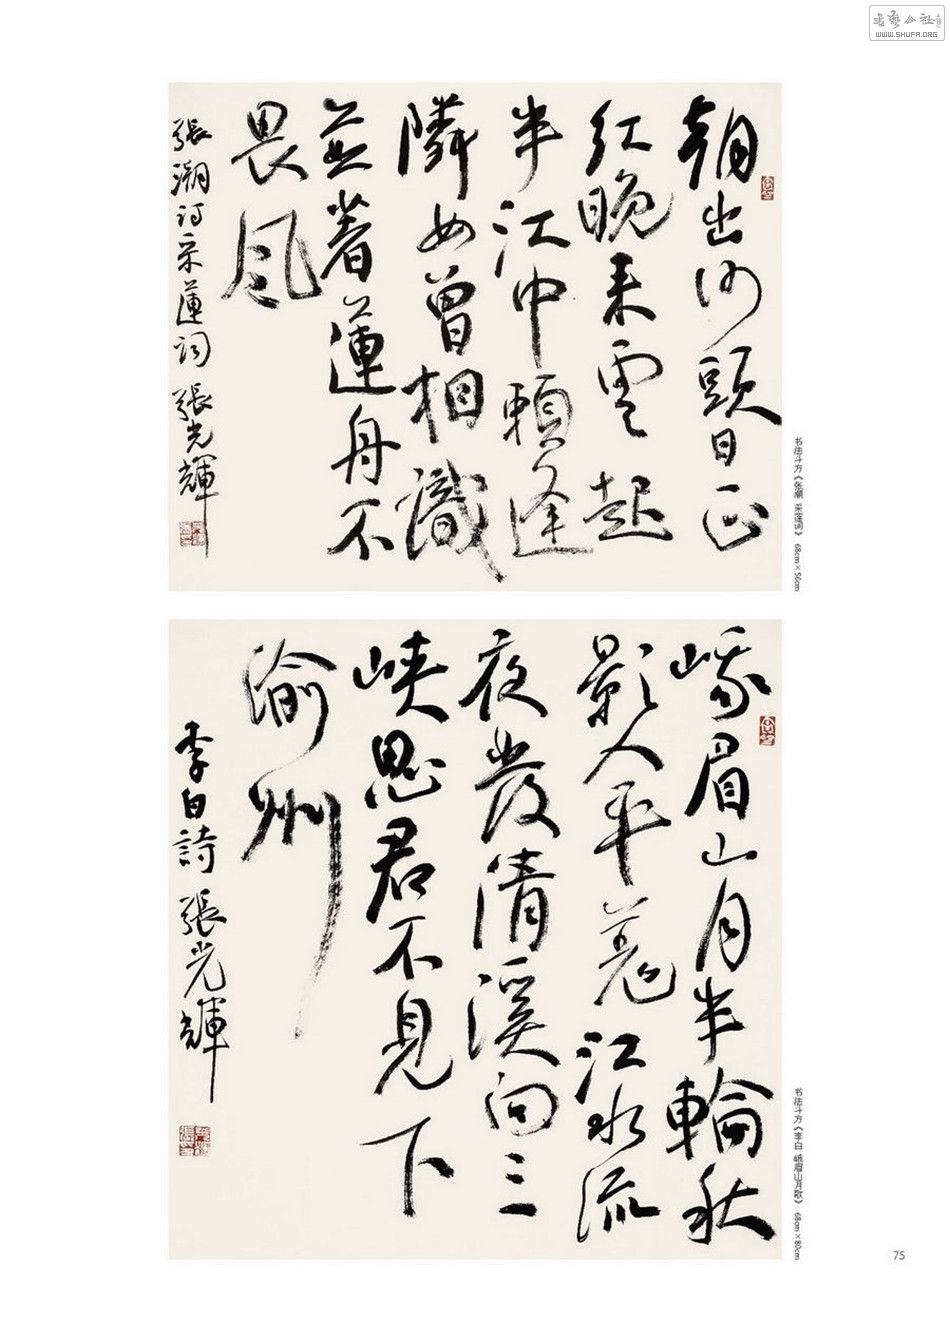 書藝公社
WWW.SHUFA.ORG
朝出沙頭日正
红晚来雲起
半江中賴逢
隣女曾相識
並著蓮舟不
畏風
張潮诗采蓮詞 張光輝
书法斗方《张潮 采莲词》 68cm×56cm
峨眉山月半輪秋
影入平羌江水流
夜發清溪向三
峡思君不見下
渝州
李白詩 張光輝
书法斗方《李白 峨眉山月歌》 68cm×80cm
75